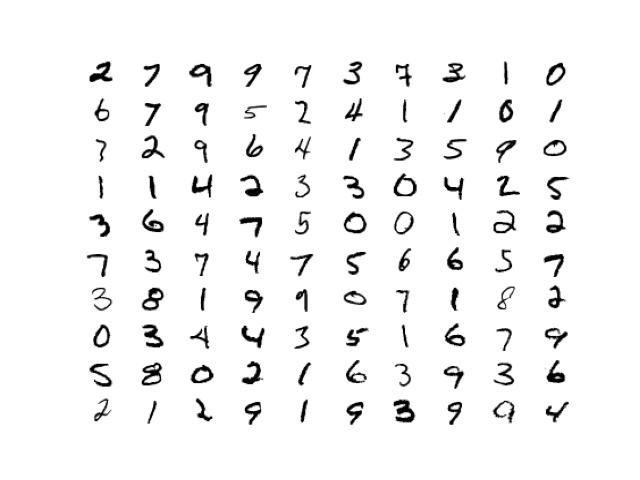 2 7 9 9 7 3 7 3 1 0
6 7 9 5 2 4 1 1 0 1
7 2 9 6 4 1 3 5 9 0
1 1 4 2 3 3 0 4 2 5
3 6 4 7 5 0 0 1 2 2
7 3 7 4 7 5 6 6 5 7
3 8 1 9 9 0 7 1 8 2
0 3 4 4 3 5 1 6 7 9
5 8 0 2 1 6 3 9 3 6
2 1 2 9 1 9 3 9 9 4